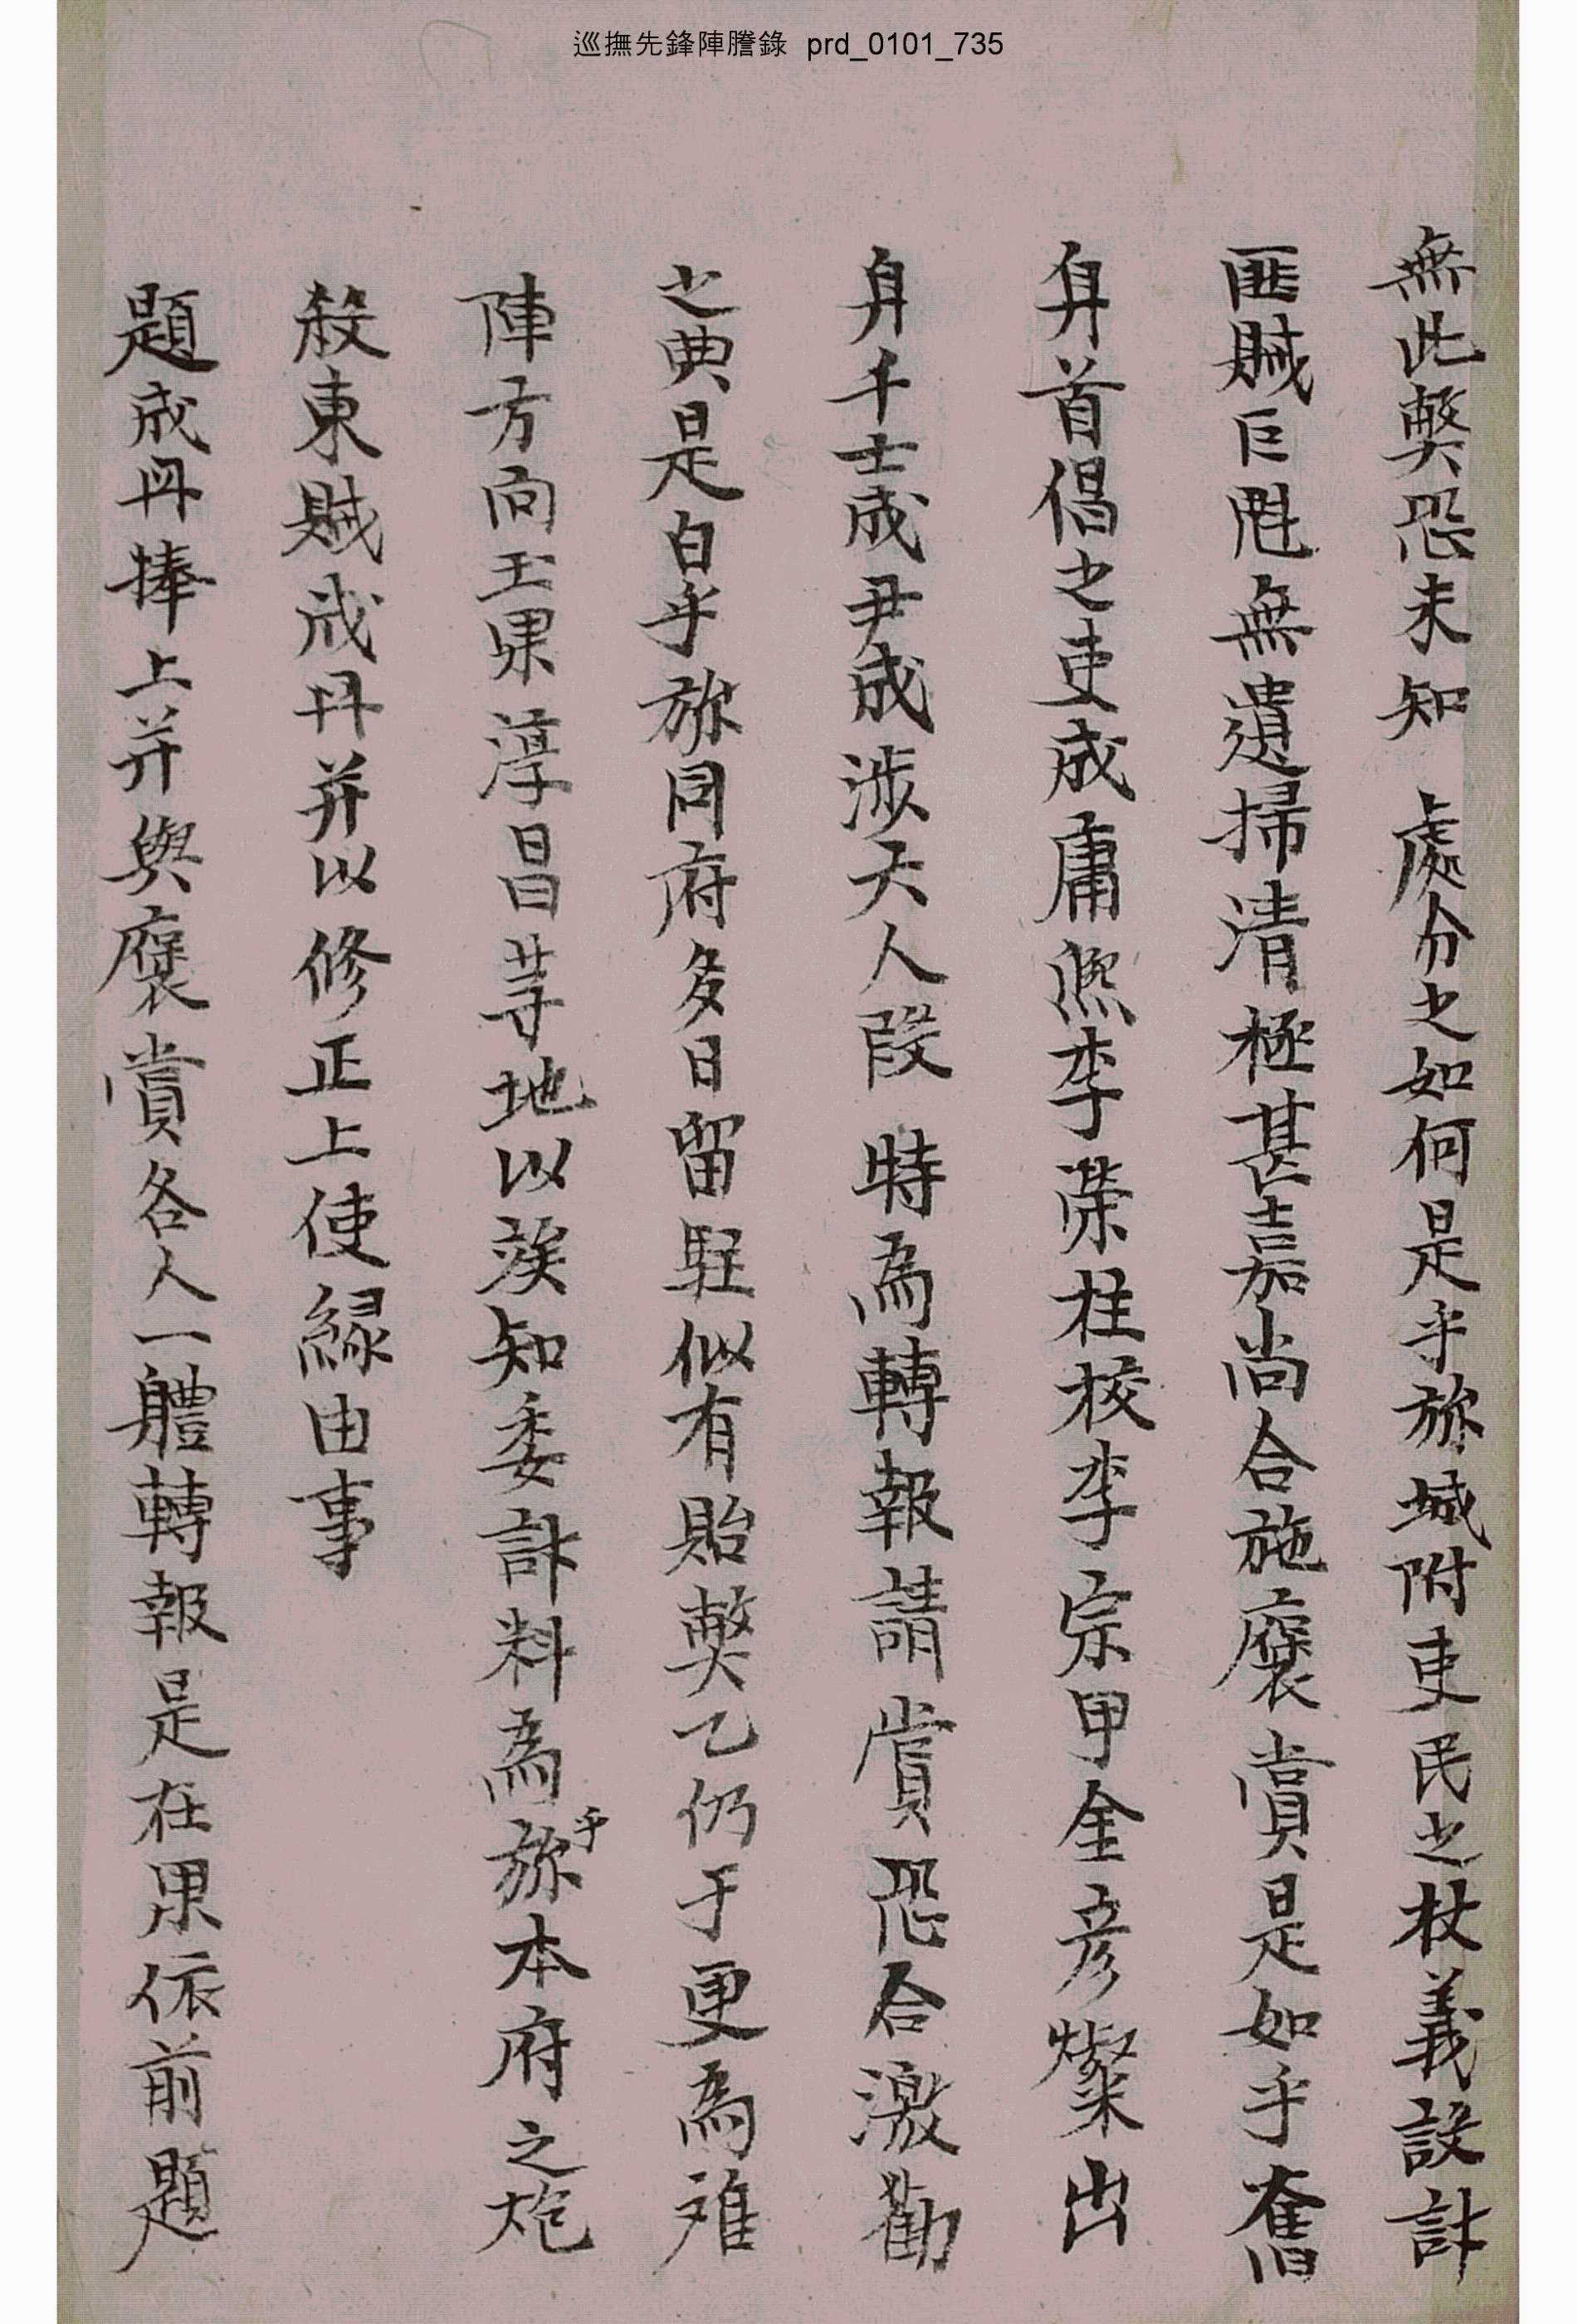 巡撫先鋒陣謄錄 prd_0101_735
無此弊恐未知 處分之如何是乎旀城附吏民之杖義設計
匪賊巨魁無遺掃清極甚嘉尚合施褒賞是如乎奮
身首倡之吏成庸熙李榮柱校李宗甲全彦燦出
身千士成尹成涉天人段 特為轉報請賞恐合激勸
之典是白乎旀同府多日留駐似有貽弊乙仍于更為離
陣方向玉果淳昌等地以竢知委計料為乎旀本府之炮
殺東賊成冊并以修正上使緣由事
題成冊捧上并與褒賞各人一體轉報是在果依前題